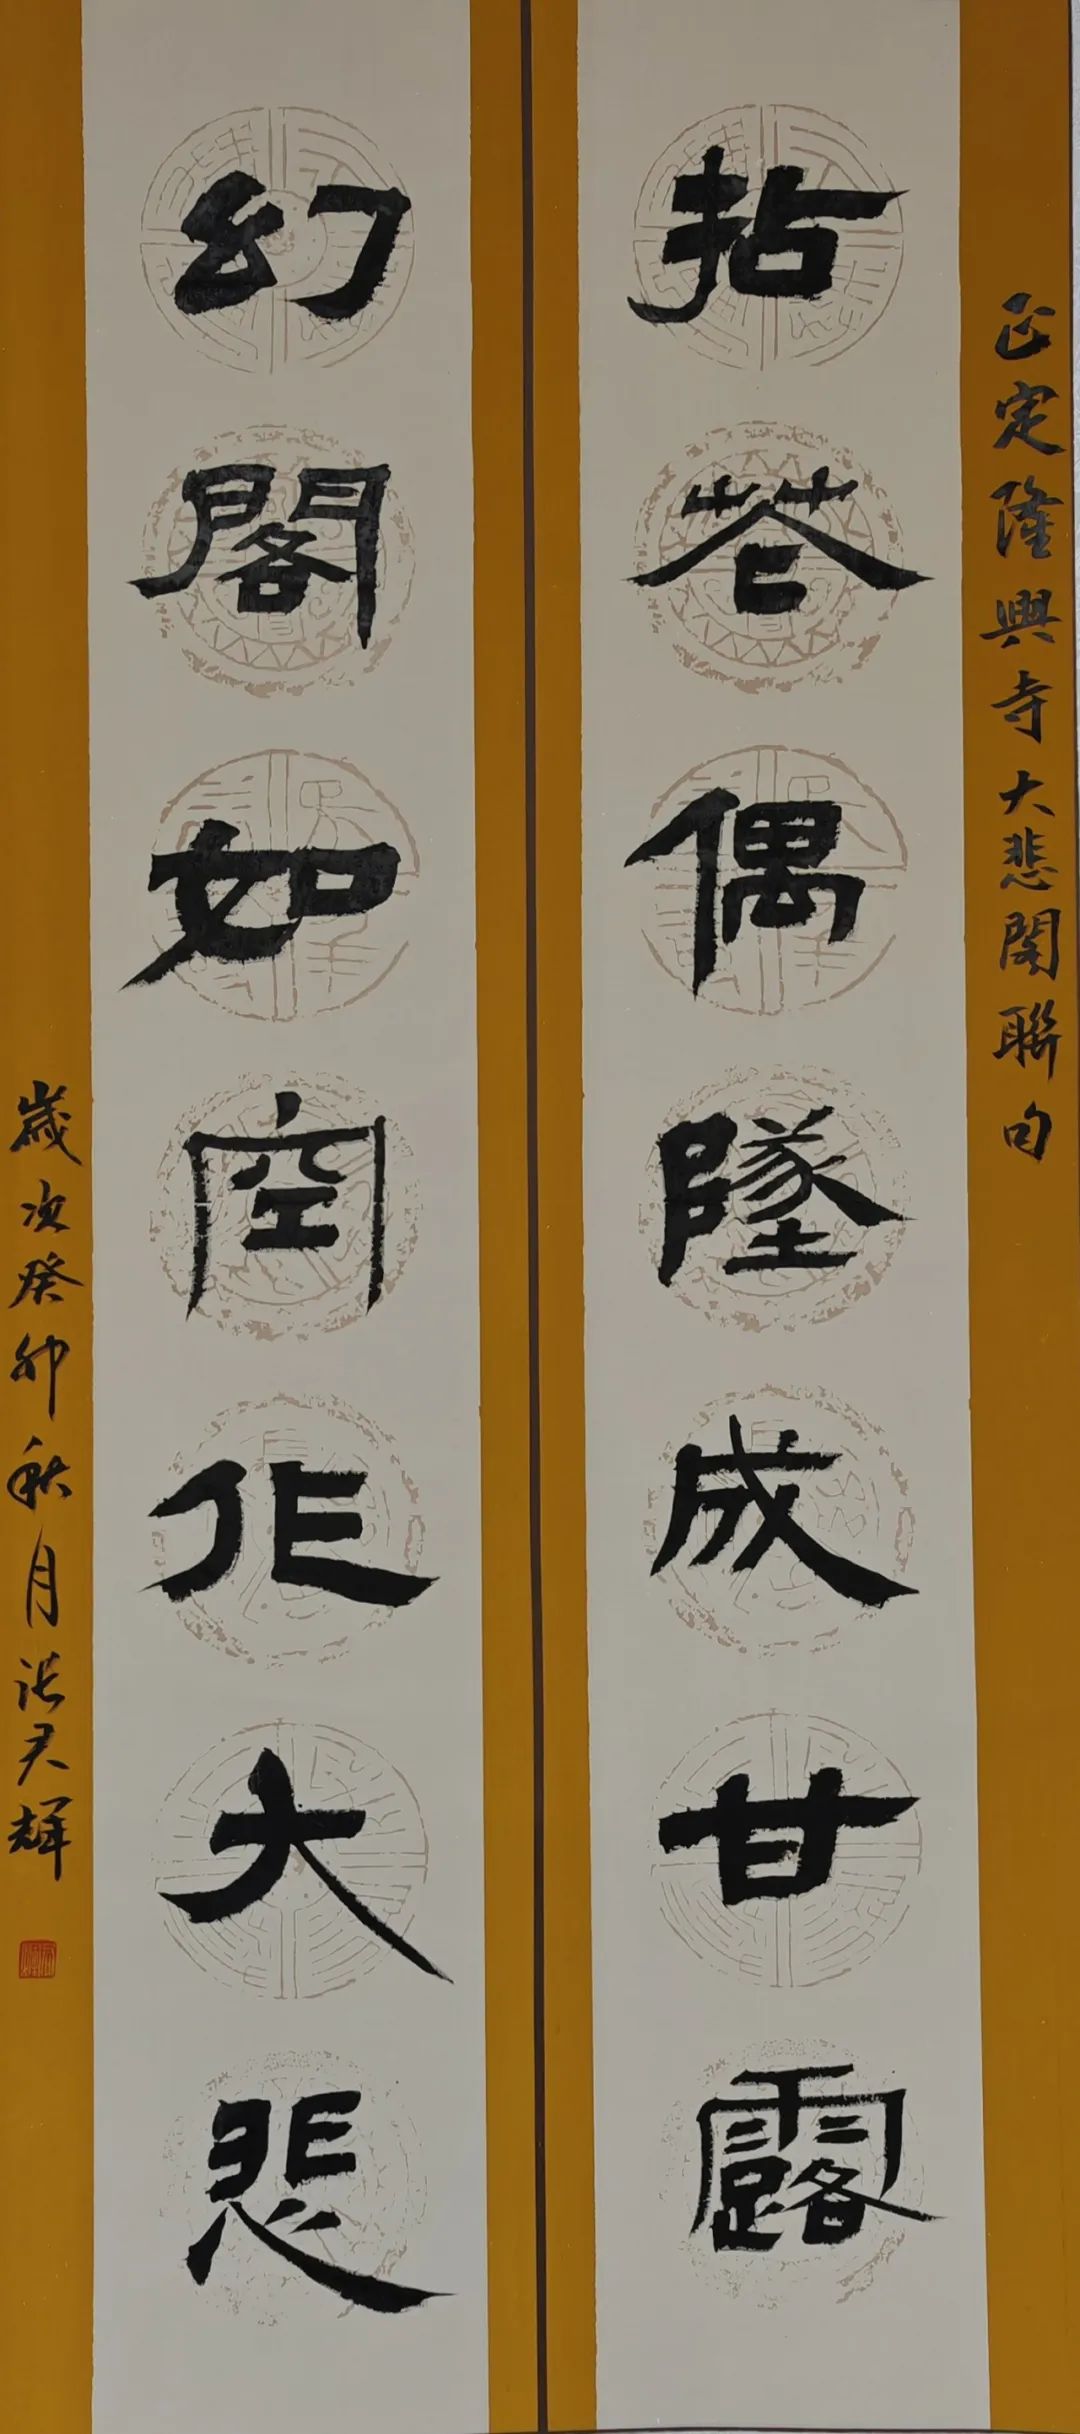 正定隆興寺大悲閣聯句
拈花偶墜成甘露
幻閣如空作大悲
歲次癸卯秋月張君輝